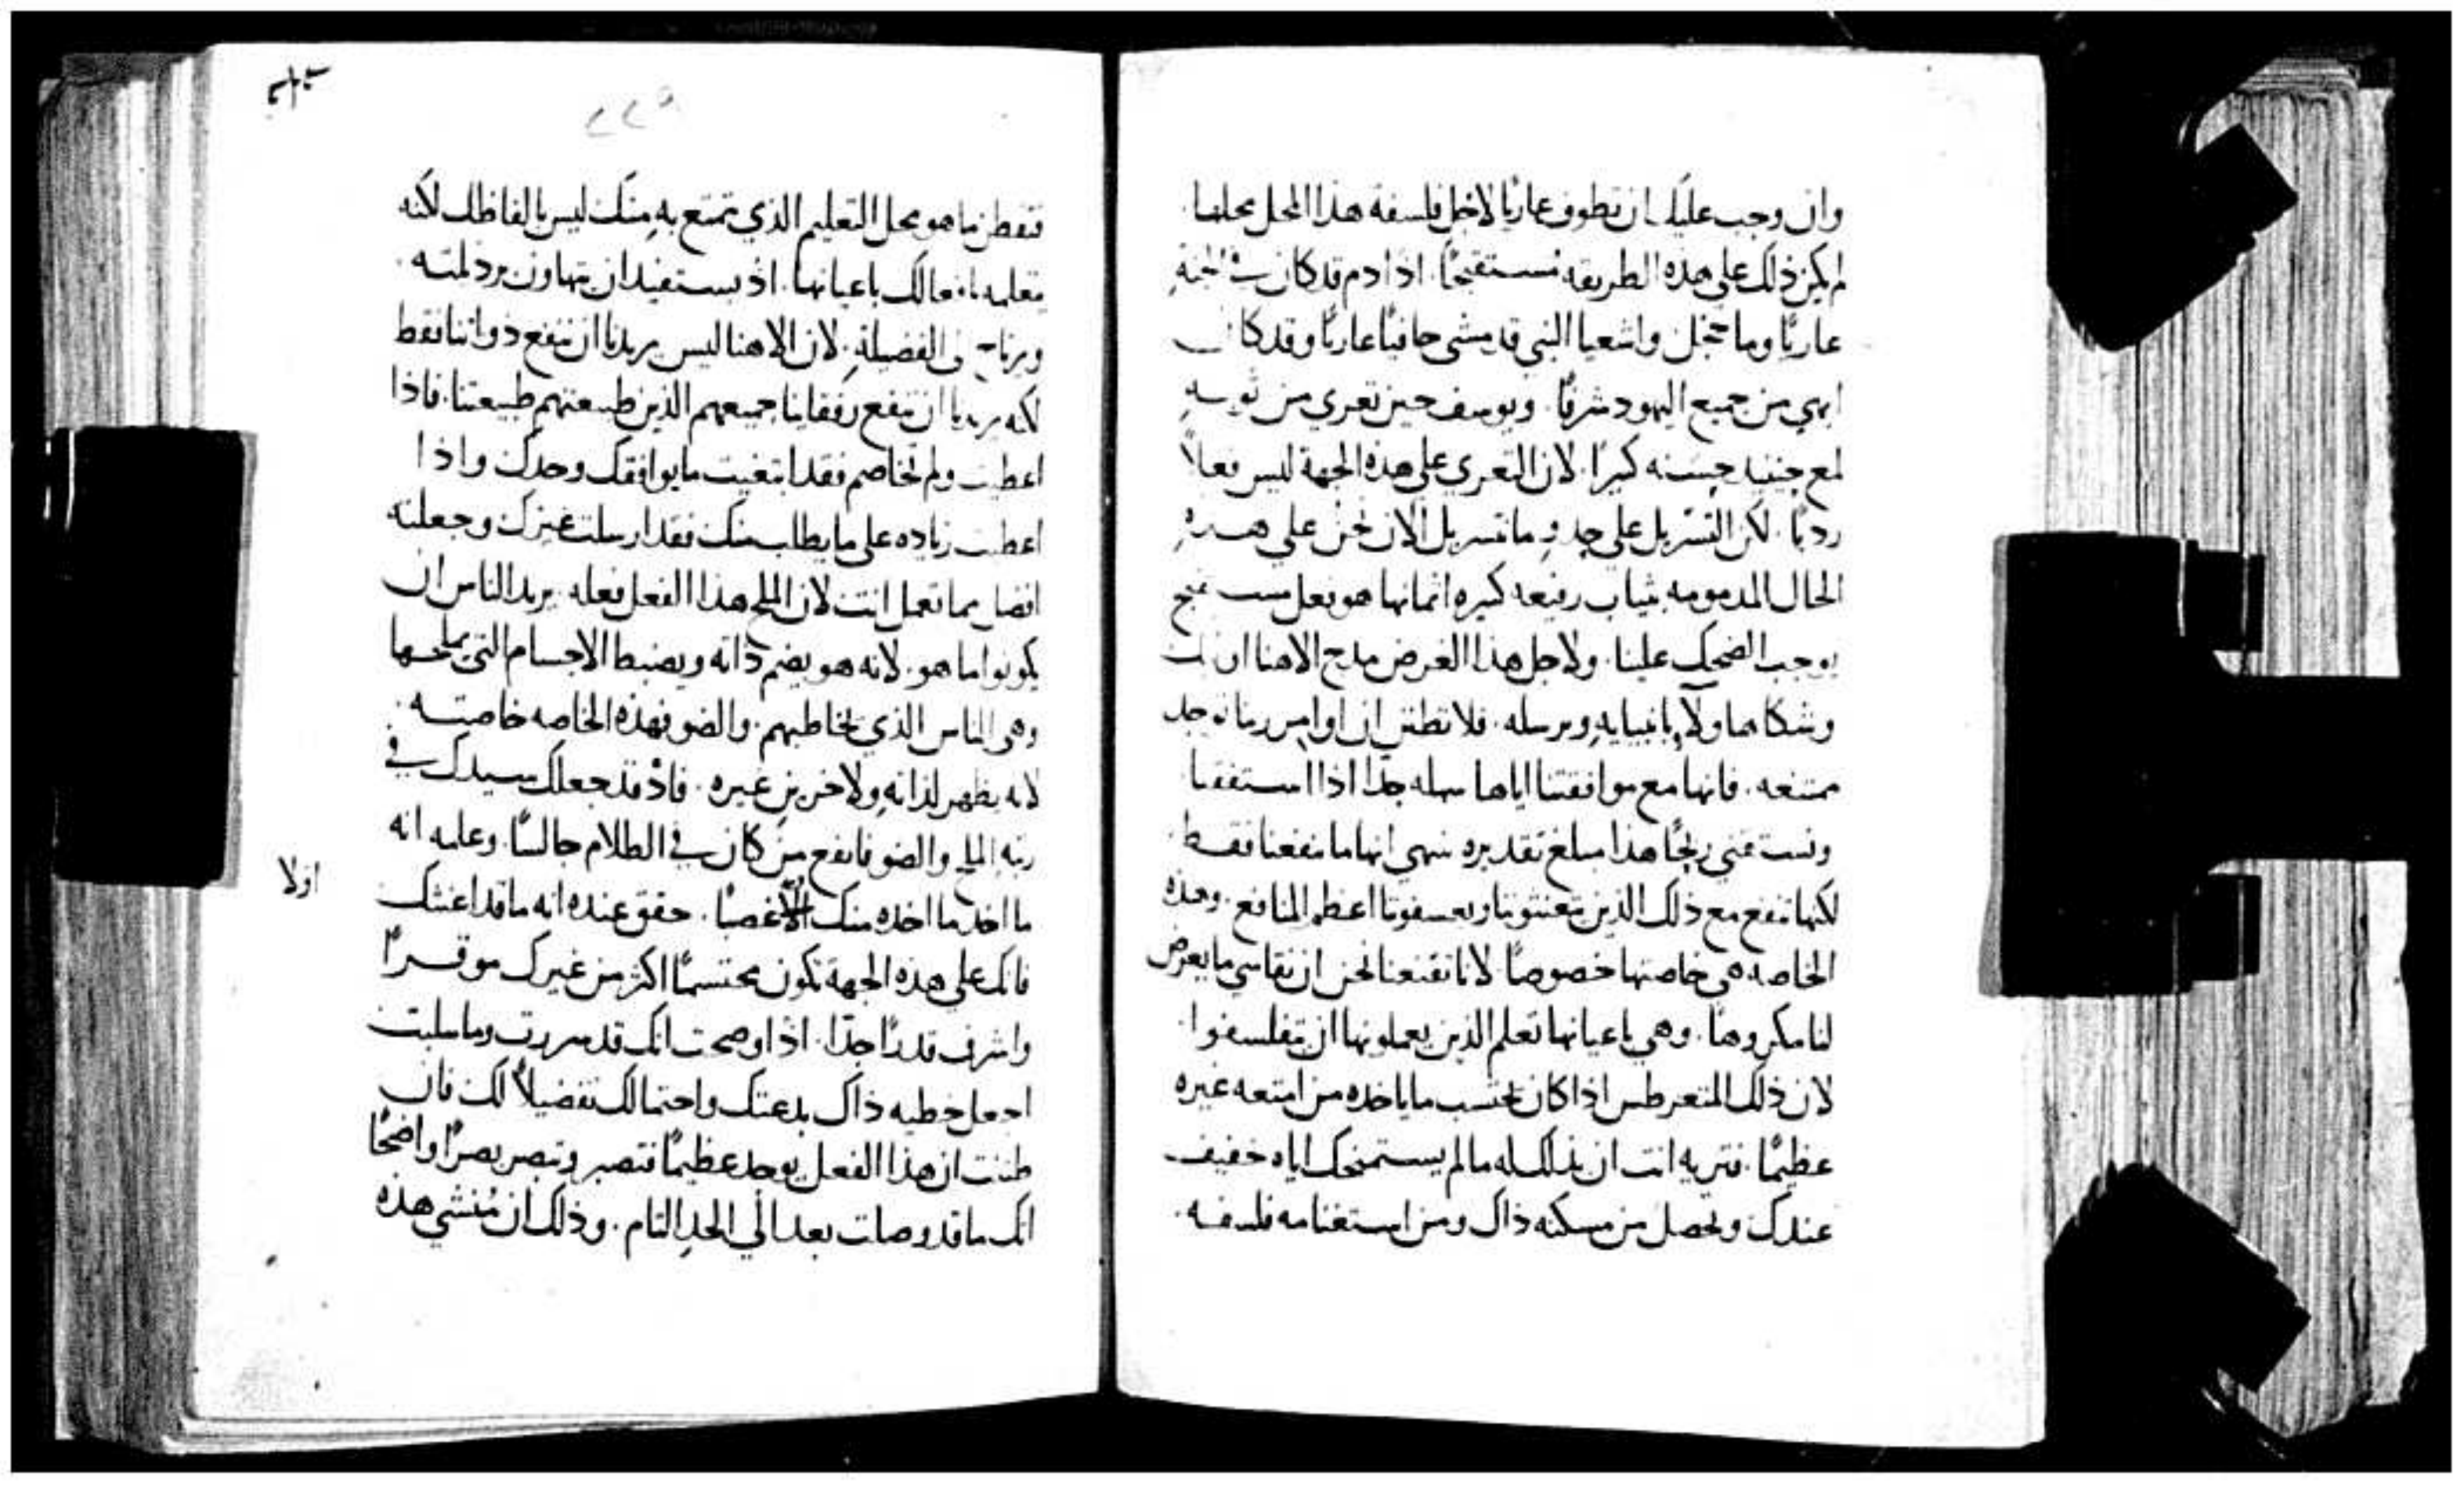 وان وجب عليك ان تطوف عاريا لاجل فلسفة هذا المحل محلها
لم يكن ذلك على هذه الطريقه مستقبحًا. اذ ادم قد كان في الجنةِ
عاريًا وما خجل واشعيا النبي قد مشى حافيًا عاريًا وقد كان
ابهى من جميع اليهود شرفًا. ويوسف حين تعرى من ثوبهِ
لمع حينيد حسنه كبيرًا. لان التعري على هذه الجهة ليس فعلاً
رديًا. لكن التسربل على حدو ما نتسربل الان نحن على هذهِ
الحال المدمومه بثياب رفيعه كبيره اثمانها هو فعل
يوجب الضحك علينا. ولاجل هذا الغرض مدح الاهنا
وشكا هاولآ بانبيايه وبرسله. فلا تظنن ان اوامر ربنا توجد
ممتنعه. فانها مع موافقتنا اياها سهله جدا اذا استفقنا
ونستقني ربحًا هذا مبلغ تقديره ينهي انها ما تنفعنا فقط
لكنها تنفع مع ذلك الذين يتعنتونا ويعسفونا اعظم المنافع. وهذه
الخاصه هي خاصتها خصوصًا لانا تقنعنا نحن ان نقاسي ما يعرض
لنا مكروهًا. وهي باعيانها تعلم الذين يعملونها ان يتفلسفوا
لان ذلك المتغرطس اذا كان يحتسب ما ياخده من امتعه غيره
عظيمًا. فتريه انت ان بذلك له ما لم يستمنحك اياه خفيف
عندك وتحصل من مسكنه ذاك ومن استغنامه فلسفه
٢٢٩
فتفطن ما هو محل التعليم الذي يتمتع به منك ليس بالفاظك لكنه
يتعلمه بافعالك باعيانها. اذ يستفيد ان يتهاون برذلته
ويرتاح الى الفضيلةِ. لان الاهنا ليس يريدنا ان ننفع ذواتنا فقط
لكنه يريدنا ان ننفع رفقاينا جميعهم الذين طبيعتهم طبيعتنا. فاذا
اعطيت ولم تخاصم فقد ابتغيت ما يوافقك وحدك واذا
اعطيت زياده على ما يطلب منك فقد ارسلت غيرك وجعلته
افضل مما تعمل انت لان الملح هذا الفعل فعله يريد الناس ان
يكونوا ما هو. لانه هو يضم ذاته ويضبط الاجسام التي يملحها
وهي الناس الذي يخاطبهم. والضو فهذه الخاصه خاصته
لانه يظهر لذاته ولاخرين غيره. فاذ قد جعلك سيدك في
رتبه الملح والضو فانفع من كان في الظلام جالسًا. وعلمه انه
اولا
ما اخد ما اخده منك الا غصبًا. حقق عنده انه ما قد اعنتك
فانك على هذه الجهة تكون محتشمًا اكثر من غيرك موقرًا
واشرف قدرًا جدًا. اذا اوضحت انك قد سررت وما سلبت
اجعل خطيه ذاك بدعتك واحتمالك تفضيلاً لك فان
ظننت ان هذا الفعل يوجد عظيمًا فتصبر وتبصر بصرًا واضحًا
انك ما قد وصلت بعد الي الحد التام. وذلك ان مُنشي هذه